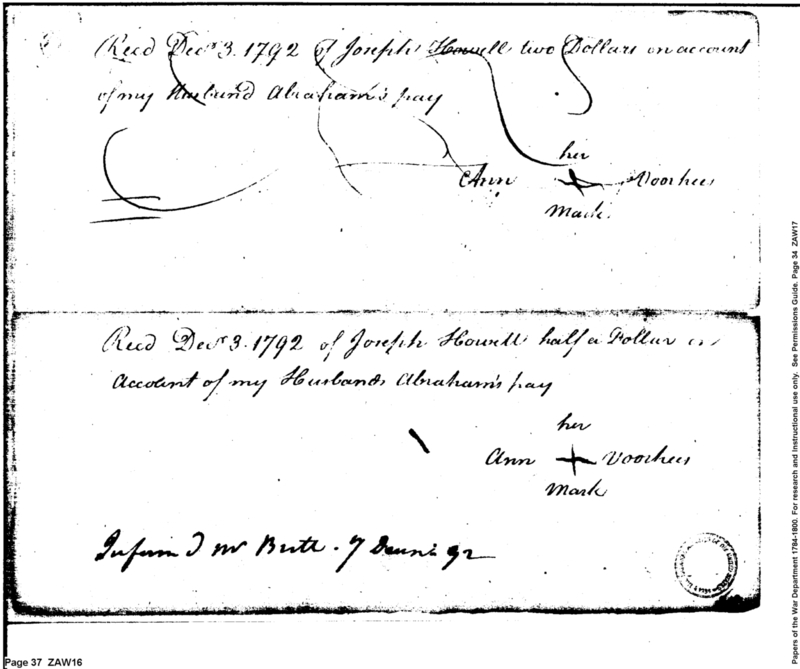 Recd Decr. 3. 1792 of Joseph Howell two Dollars on account
of my Husband Abraham's pay
her
Ann + Voorhees
Mark.
Recd Decr. 3. 1792 of Joseph Howell half a Dollar on
Account of my Husbands Abraham's pay
her
Ann + Voorhees
Mark
Mr 7 92
Page 37 ZAW16
Papers of the War Department 1784-1800. For research and Instructional use only. See Permissions Guide. Page 34 ZAW17